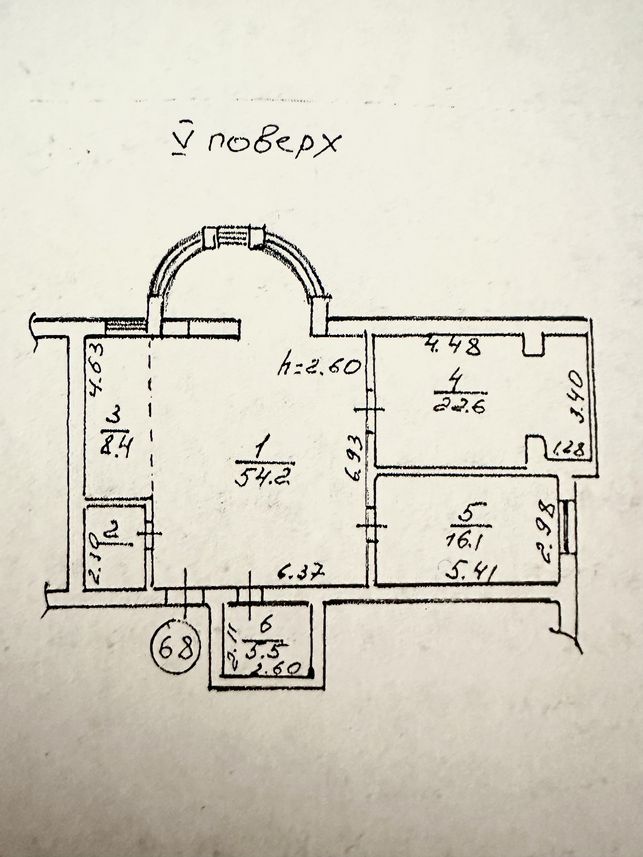 V поверх
4.63
h=2.60
4.48
4
22.6
3.40
3
8.4
1
54.2
6.93
1.28
2
2.10
5
16.1
2.98
6.37
5.41
68
6
5.5
2.11
2.60